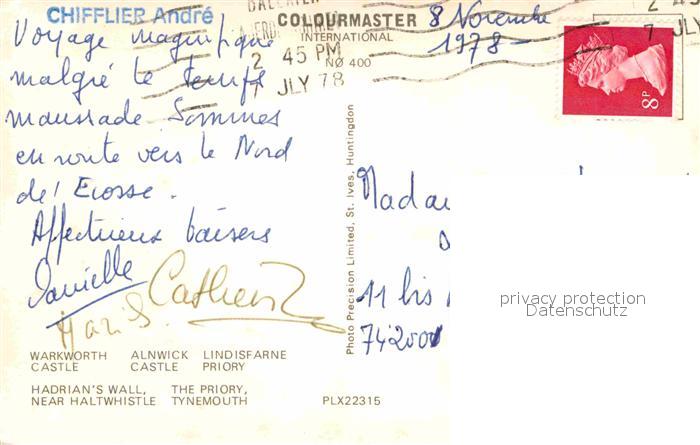 CHIFFLIER André
COLOURMASTER
INTERNATIONAL
NØ 400
2 45 PM
7 JLY 78
8 Novembre
1978
2 4
7 JLY
8P
Voyage magnifique
malgré le temps
maussade Sommes
en route vers le Nord
de l'Ecosse.
Affectueux baisers
Danielle
Photo Precision Limited, St. Ives, Huntingdon
Madam
11 bis
74200
privacy protection
Datenschutz
WARKWORTH ALNWICK LINDISFARNE
CASTLE CASTLE PRIORY
HADRIAN'S WALL, THE PRIORY,
NEAR HALTWHISTLE TYNEMOUTH PLX22315